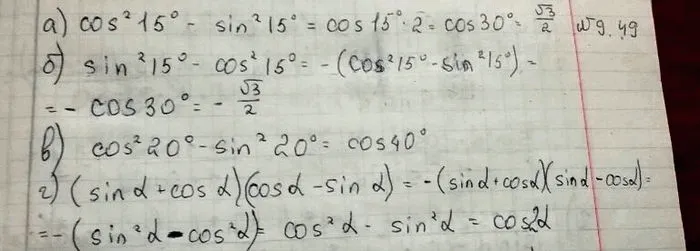 а) cos²15° - sin²15° = cos15°·2 = cos30° = √3/2 №9.49
б) sin²15° - cos²15° = -(cos²15° - sin²15°) =
= - cos30° = - √3/2
в) cos²20° - sin²20° = cos40°
г) (sinα + cosα)(cosα - sinα) = -(sinα + cosα)(sinα - cosα) =
= -(sin²α - cos²α) = cos²α - sin²α = cos2α